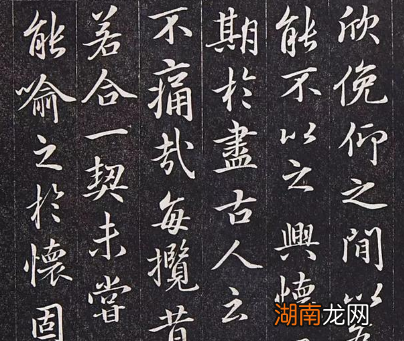 欣俛仰之間以
能不以之興懷
期於盡古人云
不痛哉每攬昔
若合一契未嘗
能喻之於懷固
湖南龙网